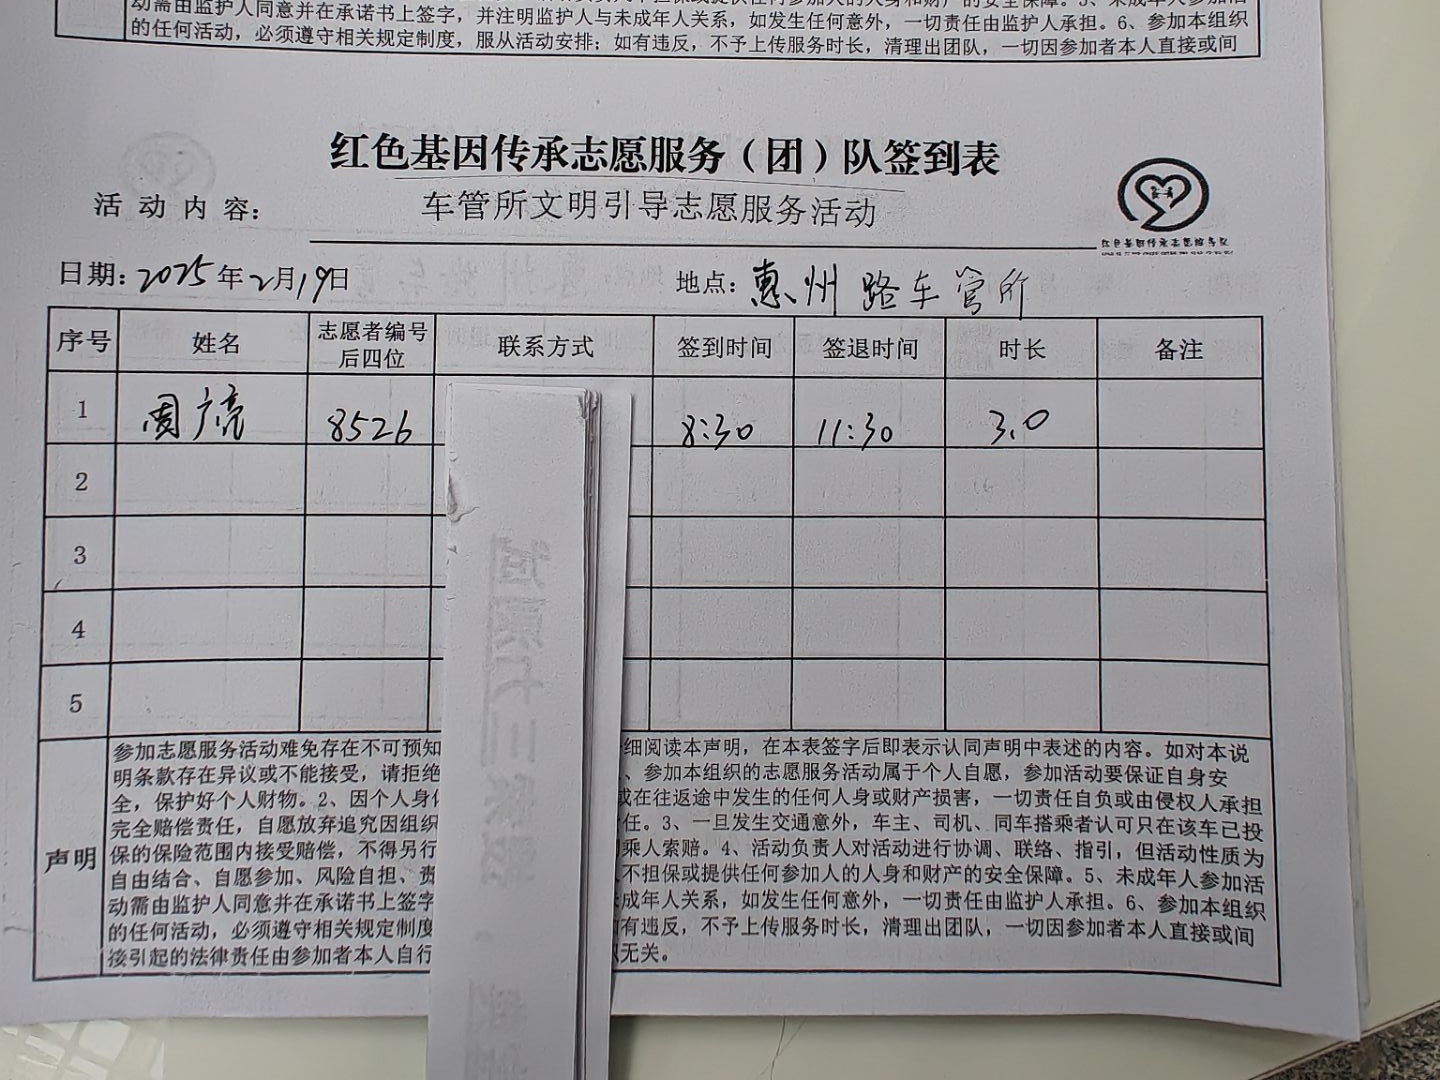 动需由监护人同意并在承诺书上签字，并注明监护人与未成年人关系，如发生任何意外，一切责任由监护人承担。6、参加本组织
的任何活动，必须遵守相关规定制度，服从活动安排；如有违反，不予上传服务时长，清理出团队，一切因参加者本人直接或间
红色基因传承志愿服务（团）队签到表
活动内容： 车管所文明引导志愿服务活动
红色基因传承志愿服务队
日期：2025年2月19日 地点：惠州路车管所
序号 姓名 志愿者编号后四位 联系方式 签到时间 签退时间 时长 备注
1 周广亮 8526 8:30 11:30 3.0
2
3
4
5
声明
参加志愿服务活动难免存在不可预知 细阅读本声明，在本表签字后即表示认同声明中表述的内容。如对本说
明条款存在异议或不能接受，请拒绝 、参加本组织的志愿服务活动属于个人自愿，参加活动要保证自身安
全，保护好个人财物。2、因个人身 或在往返途中发生的任何人身或财产损害，一切责任自负或由侵权人承担
完全赔偿责任，自愿放弃追究因组织 任。3、一旦发生交通意外，车主、司机、同车搭乘者认可只在该车已投
保的保险范围内接受赔偿，不得另行 乘人索赔。4、活动负责人对活动进行协调、联络、指引，但活动性质为
自由结合、自愿参加、风险自担、责 不担保或提供任何参加人的人身和财产的安全保障。5、未成年人参加活
动需由监护人同意并在承诺书上签字 成年人关系，如发生任何意外，一切责任由监护人承担。6、参加本组织
的任何活动，必须遵守相关规定制度 有违反，不予上传服务时长，清理出团队，一切因参加者本人直接或间
接引起的法律责任由参加者本人自行 无关。